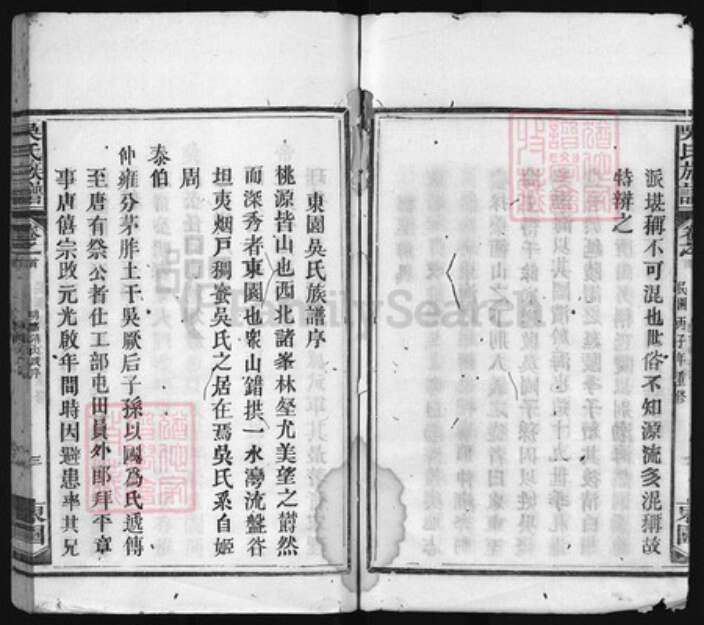 吳氏族譜
卷之首
民國丙子年重修
東園
派堪稱不可混也世俗不知源流多混稱故
特辨之
東園吳氏族譜序
桃源皆山也西北諸峯林壑尤美望之蔚然
而深秀者東園也衆山錯拱一水灣流盤谷
坦夷烟戶稠密吳氏之居在焉吳氏系自姬
周
泰伯
仲雍分茅胙土于吳厥后子孫以國爲氏遞傳
至唐有祭公者仕工部屯田員外郎拜平章
事唐僖宗改元光啟年間時因避患率其兄
吳氏族譜
卷之首
三
東園
FamilySearch